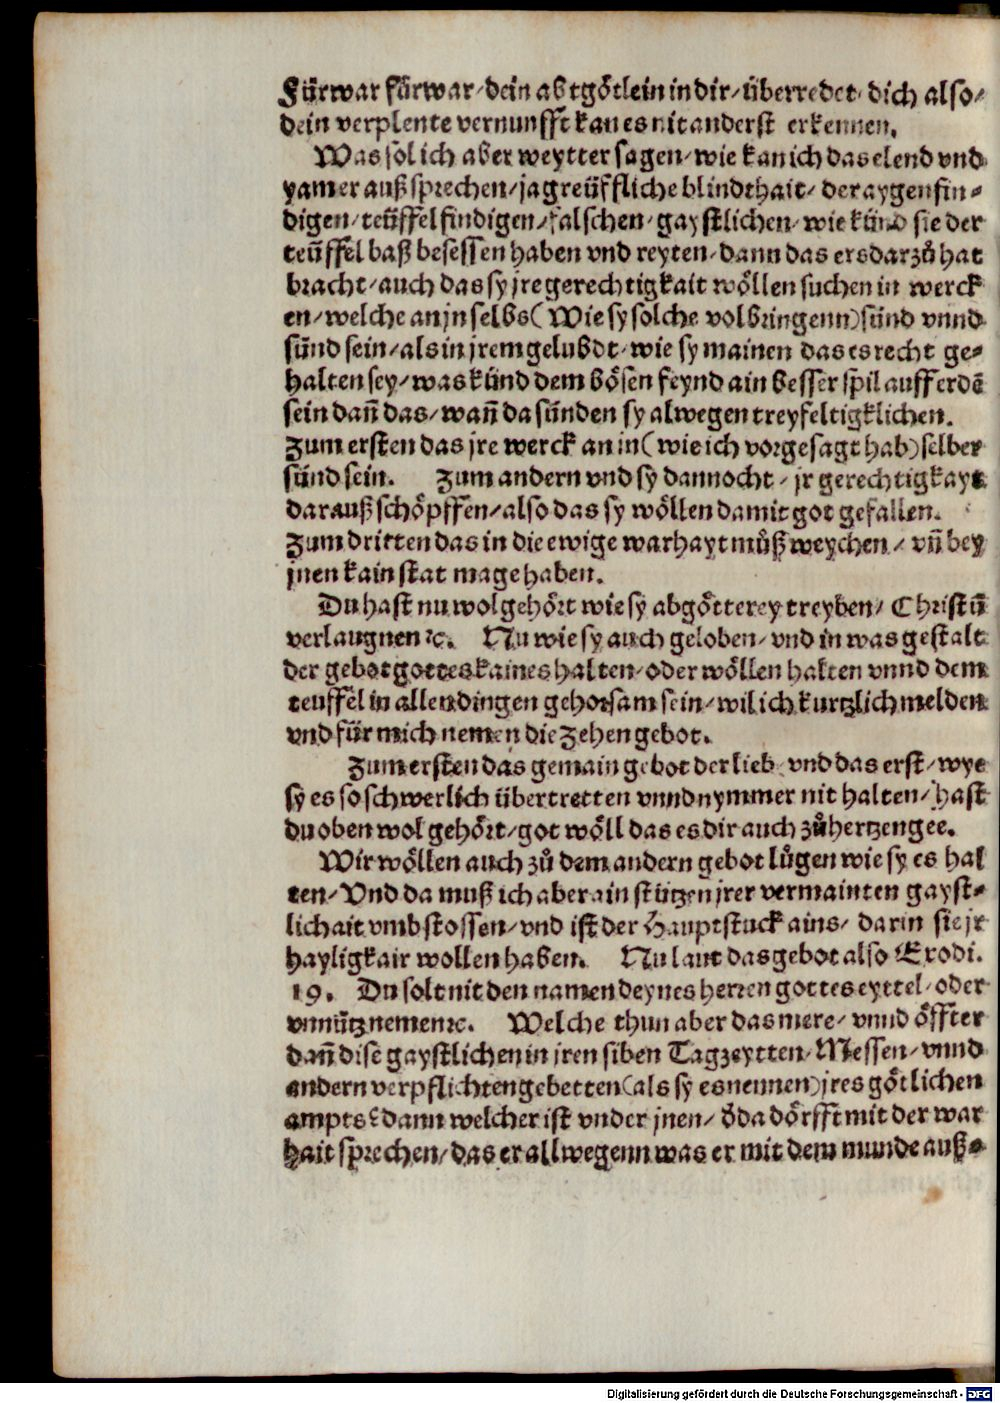 Fürwar fürwar/dein abtgötlein in dir/überredet dich also/
dein verplente vernunfft kan es nit anderst erkennen.
Was sol ich aber weytter sagen/wie kan ich das elend vnd
yamer außsprechen/ja greüffliche blindthait/der aygensin⸗
digen/teüffelsindigen/falschen/gaystlichen/wie künd sie der
teüffel baß besessen haben vnd reyten/dann das ers darzů hat
bracht/auch das sy jre gerechtigkait wöllen suchen in werck
en/welche an jn selbs(Wie sy solche volbringenn)sünd vnnd
sünd sein/als in jrem gelubdt/wie sy mainen das es recht ge⸗
halten sey/was künd dem bösen feynd ain besser spil auff erdē
sein dañ das/wañ da sünden sy alwegen treyfeltigklichen.
Zum ersten das jre werck an in(wie ich vorgesagt hab)selber
sünd sein. Zum andern vnd sy dannocht/jr gerechtigkayt
darauß schöpffen/also das sy wöllen damit got gefallen.
Zum dritten das in die ewige warhayt můß weychen/vñ bey
jnen kain stat mage haben.
Du hast nu wol gehört wie sy abgötterey treyben/Christū
verlaugnen ꝛc. Nu wie sy auch geloben/vnd in was gestalt
der gebot gottes kaines halten/oder wöllen halten vnnd dem
teuffel in allen dingen gehorsam sein/wil ich kurtzlich melden
vnd für mich nemen die Zehen gebot.
Zum ersten das gemain gebot der lieb/vnd das erst/wye
sy es so schwerlich übertretten vnnd nymmer nit halten/hast
du oben wol gehört/got wöll das es dir auch zů hertzen gee.
Wir wöllen auch zů dem andern gebot lůgen wie sy es hal
ten/Vnd da muß ich aber ain stützen jrer vermainten gayst⸗
lichait vmbstossen/vnd ist der Hauptstuck ains/darin sie jr
hayligkair wollen haben. Nu laut das gebot also Exodi.
19. Du solt nit den namen deynes herren gottes eyttel/oder
vnnütz nemen ꝛc. Welche thun aber das mere/vnnd öffter
dañ dise gaystlichen in jren siben Tagzeytten/Messen/vnnd
andern verpflichten gebetten(als sy es nennen)jres götlichen
ampts? dann welcher ist vnder jnen/ð da dörfft mit der war
hait sprechen/das er allwegenn was er mit dem munde auß⸗
Digitalisierung gefördert durch die Deutsche Forschungsgemeinschaft - DFG